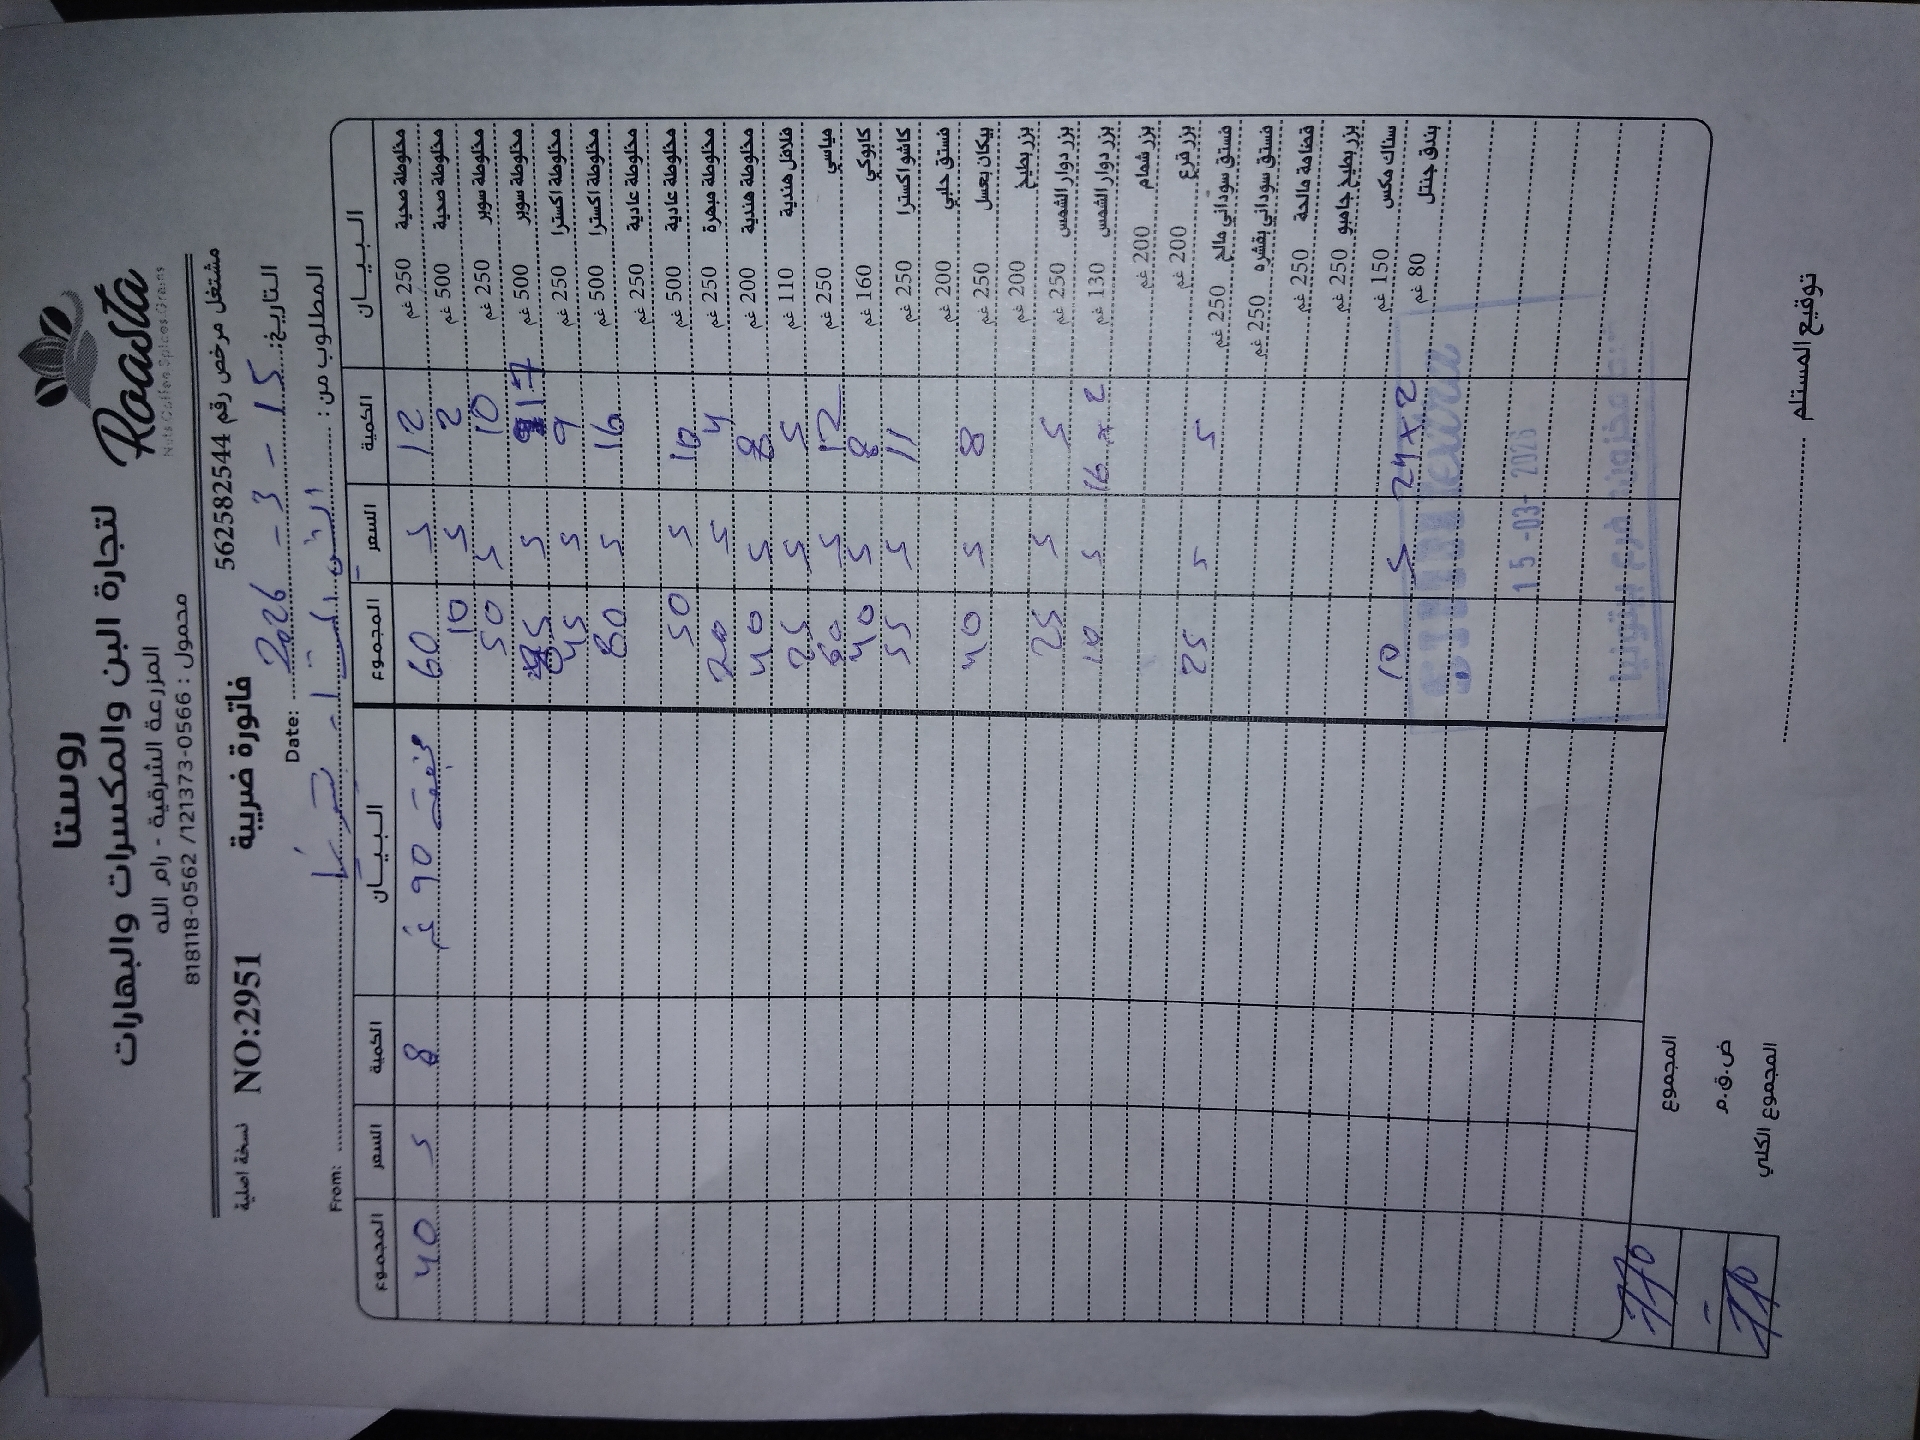 روستا
لتجارة البن والمكسرات والبهارات
Raasta
Nuts Coffee Spices Grains
المزرعة الشرقية - رام الله
محمول : 0566-1213773/ 0562-818118
مشتغل مرخص رقم 562582544
نسخة اصلية NO:2951 فاتورة ضريبية
التاريخ: 15 - 3 - 2026 Date:
المطلوب من: From:
البيان الكمية السعر المجموع البيان الكمية السعر المجموع
مخلوطة صحية 250 غم 12 5 60 90 غم 8 5 40
مخلوطة صحية 500 غم 2 5 10
مخلوطة سوبر 250 غم 10 5 50
مخلوطة سوبر 500 غم 17 5 85
مخلوطة اكسترا 250 غم 9 5 45
مخلوطة اكسترا 500 غم 16 5 80
مخلوطة عادية 250 غم
مخلوطة عادية 500 غم 10 5 50
مخلوطة مبهرة 250 غم 4 5 20
مخلوطة هندية 200 غم 8 5 40
فلافل هندية 110 غم 5 5 25
مياسي 250 غم 12 5 60
كابوكي 160 غم 8 5 40
كاشو اكسترا 250 غم 11 5 55
فستق حلبي 200 غم
بيكان بعسل 250 غم 8 5 40
بزر بطيخ 200 غم
بزر دوار الشمس 250 غم 5 5 25
بزر دوار الشمس 130 غم 16 x 2 5 10
بزر شمام 200 غم
بزر قرع 200 غم 5 5 25
فستق سوداني مالح 250 غم
فستق سوداني بقشره 250 غم
قضامة مالحة 250 غم
بزر بطيخ جامبو 250 غم
سناك مكس 150 غم 24 x 2 5 10
بندق جنتل 80 غم
15 -03- 2026
المجموع 770
ض.ق.م -
المجموع الكلي 770
توقيع المستلم